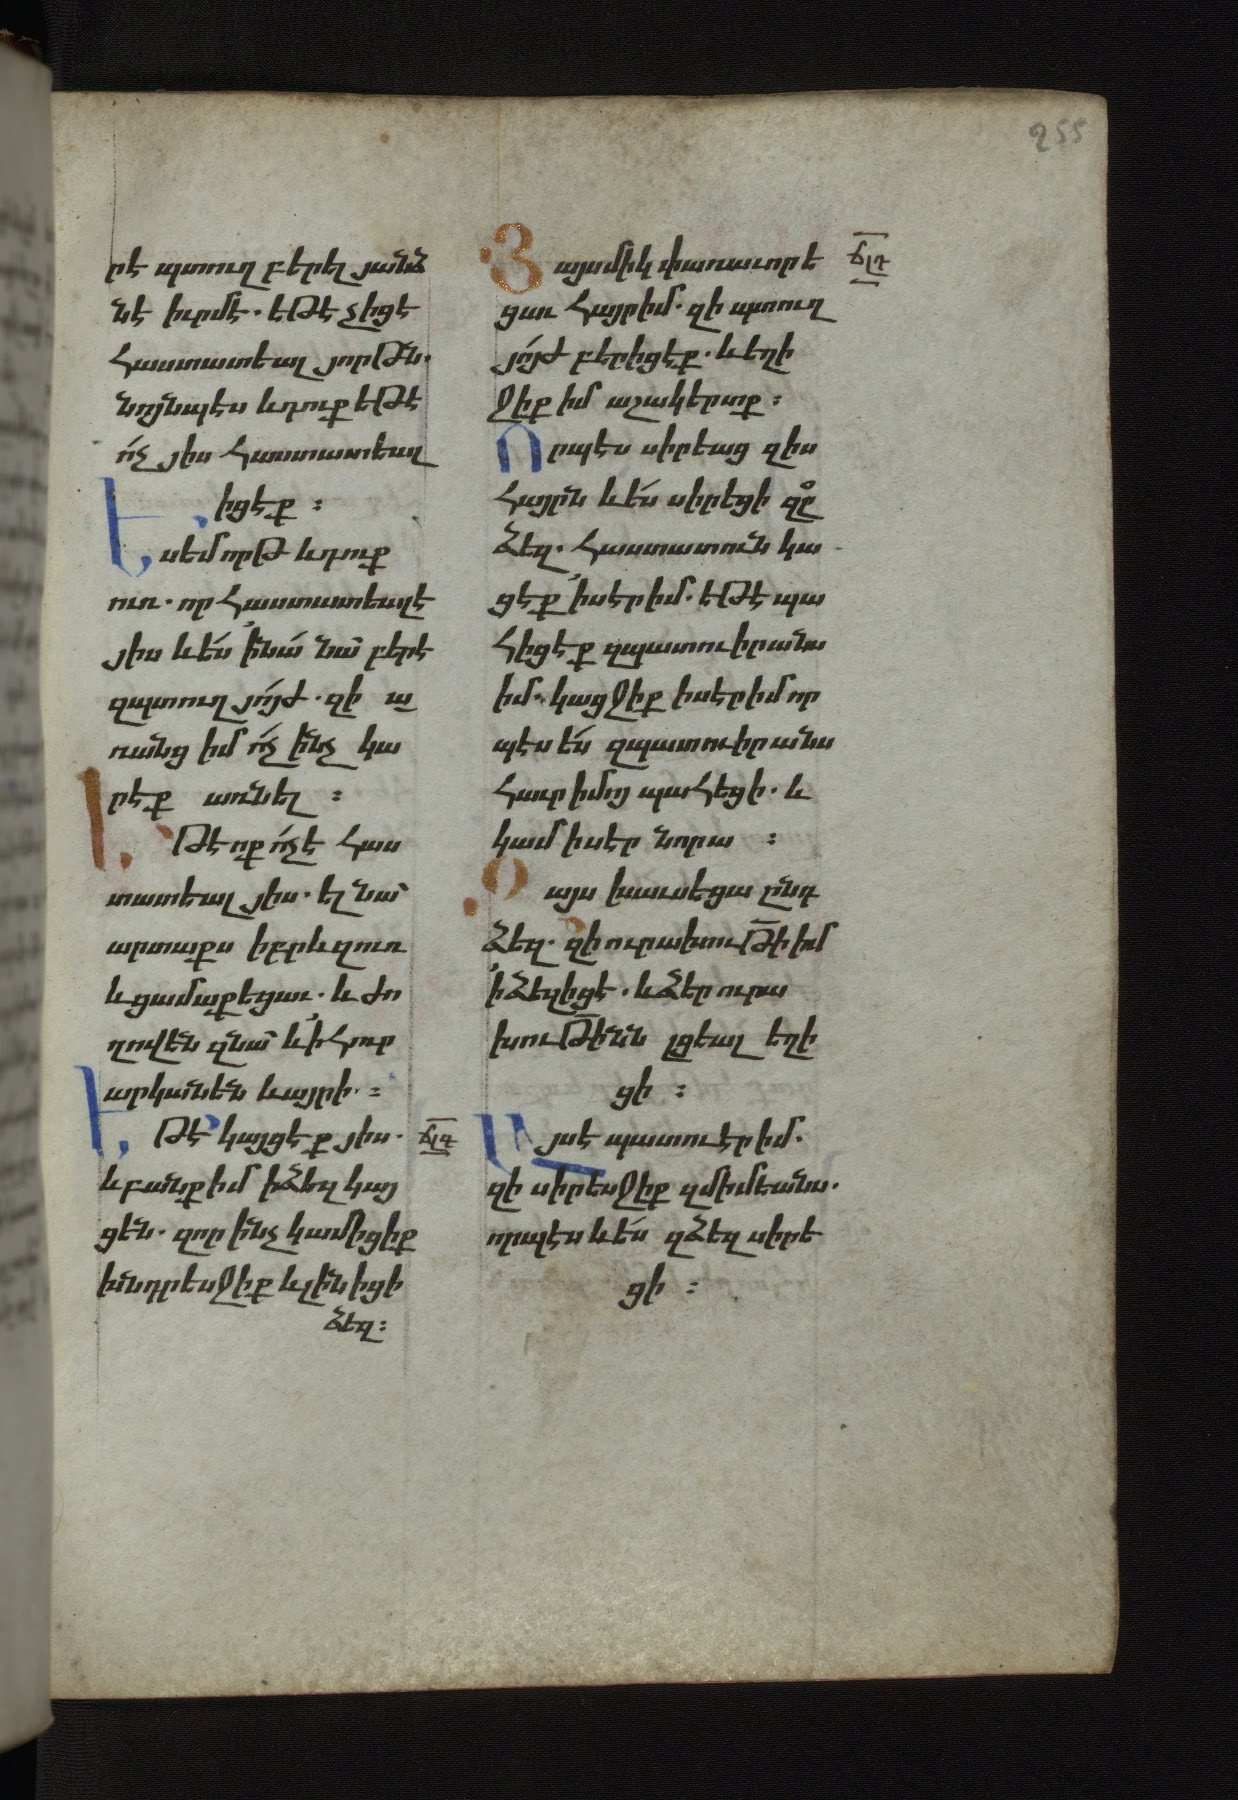 255
րէ պտուղ բերել յանձ
նէ իւրմէ. եթէ չիցէ
հաստատեալ յորթն.
նոյնպէս և դուք եթէ
ոչ յիս հաստատեալ
իցէք :
Ես եմ որթ և դուք
ուռ. որ հաստատեալ է
յիս և ես ի նմա նա բերէ
զպտուղ յոյժ. զի ա
ռանց իմ ոչ ինչ կա
րէք առնել :
Եթէ ոք ոչ է հաս
տատեալ յիս. ել նա
արտաքս իբրև զուռ
և ցամաքեցաւ. և ժո
ղովեն զնա և ի հուր
արկանեն և այրի. :
Եթէ կայցէք յիս.
ՃԼԳ
և բանք իմ ի ձեզ կայ
ցեն. զոր ինչ կամիցիք
խնդրեսջիք և լինիցի
ձեզ :
Յայսմիկ փառաւորե
ՃԼԴ
ցաւ հայր իմ. զի պտուղ
յոյժ բերիցէք. և եղի
ջիք իմ աշակերտք :
Որպէս սիրեաց զիս
հայրն և ես սիրեցի զձ
ձեզ. հաստատուն կա
ցէք ի սէր իմ. եթէ պա
հիցէք զպատուիրանս
իմ. կացջիք ի սէր իմ որ
պէս ես զպատուիրանս
հաւր իմոյ պահեցի. և
կամ ի սէր նորա :
Զայս խաւսեցա ընդ
ձեզ. զի ուրախութի իմ
ի ձեզ իցէ. և ձեր ուրա
խութինն լցեալ եղի
ցի :
Այս է պատուէր իմ.
զի սիրեսջիք զմիմեանս.
որպէս և ես զձեզ սիրե
ցի :